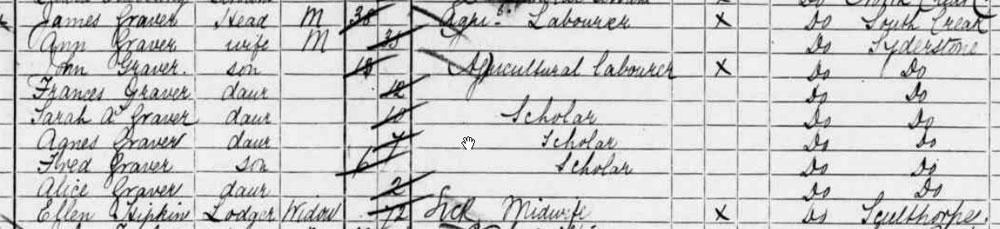 James Graver Head M 38 Agri. Labourer X Do South Creak
Ann Graver wife M 35 Do Syderstone
Jnn Graver son 18 Agricultural labourer X Do Do
Frances Graver daur 12 Do Do
Sarah A Graver daur 10 Scholar Do Do
Agnes Graver daur 7 Scholar Do Do
Fred Graver son 6 Scholar Do Do
Alice Graver daur 2 Do Do
Ellen Lodger Widow 72 Sick Midwife X Do Sculthorpe